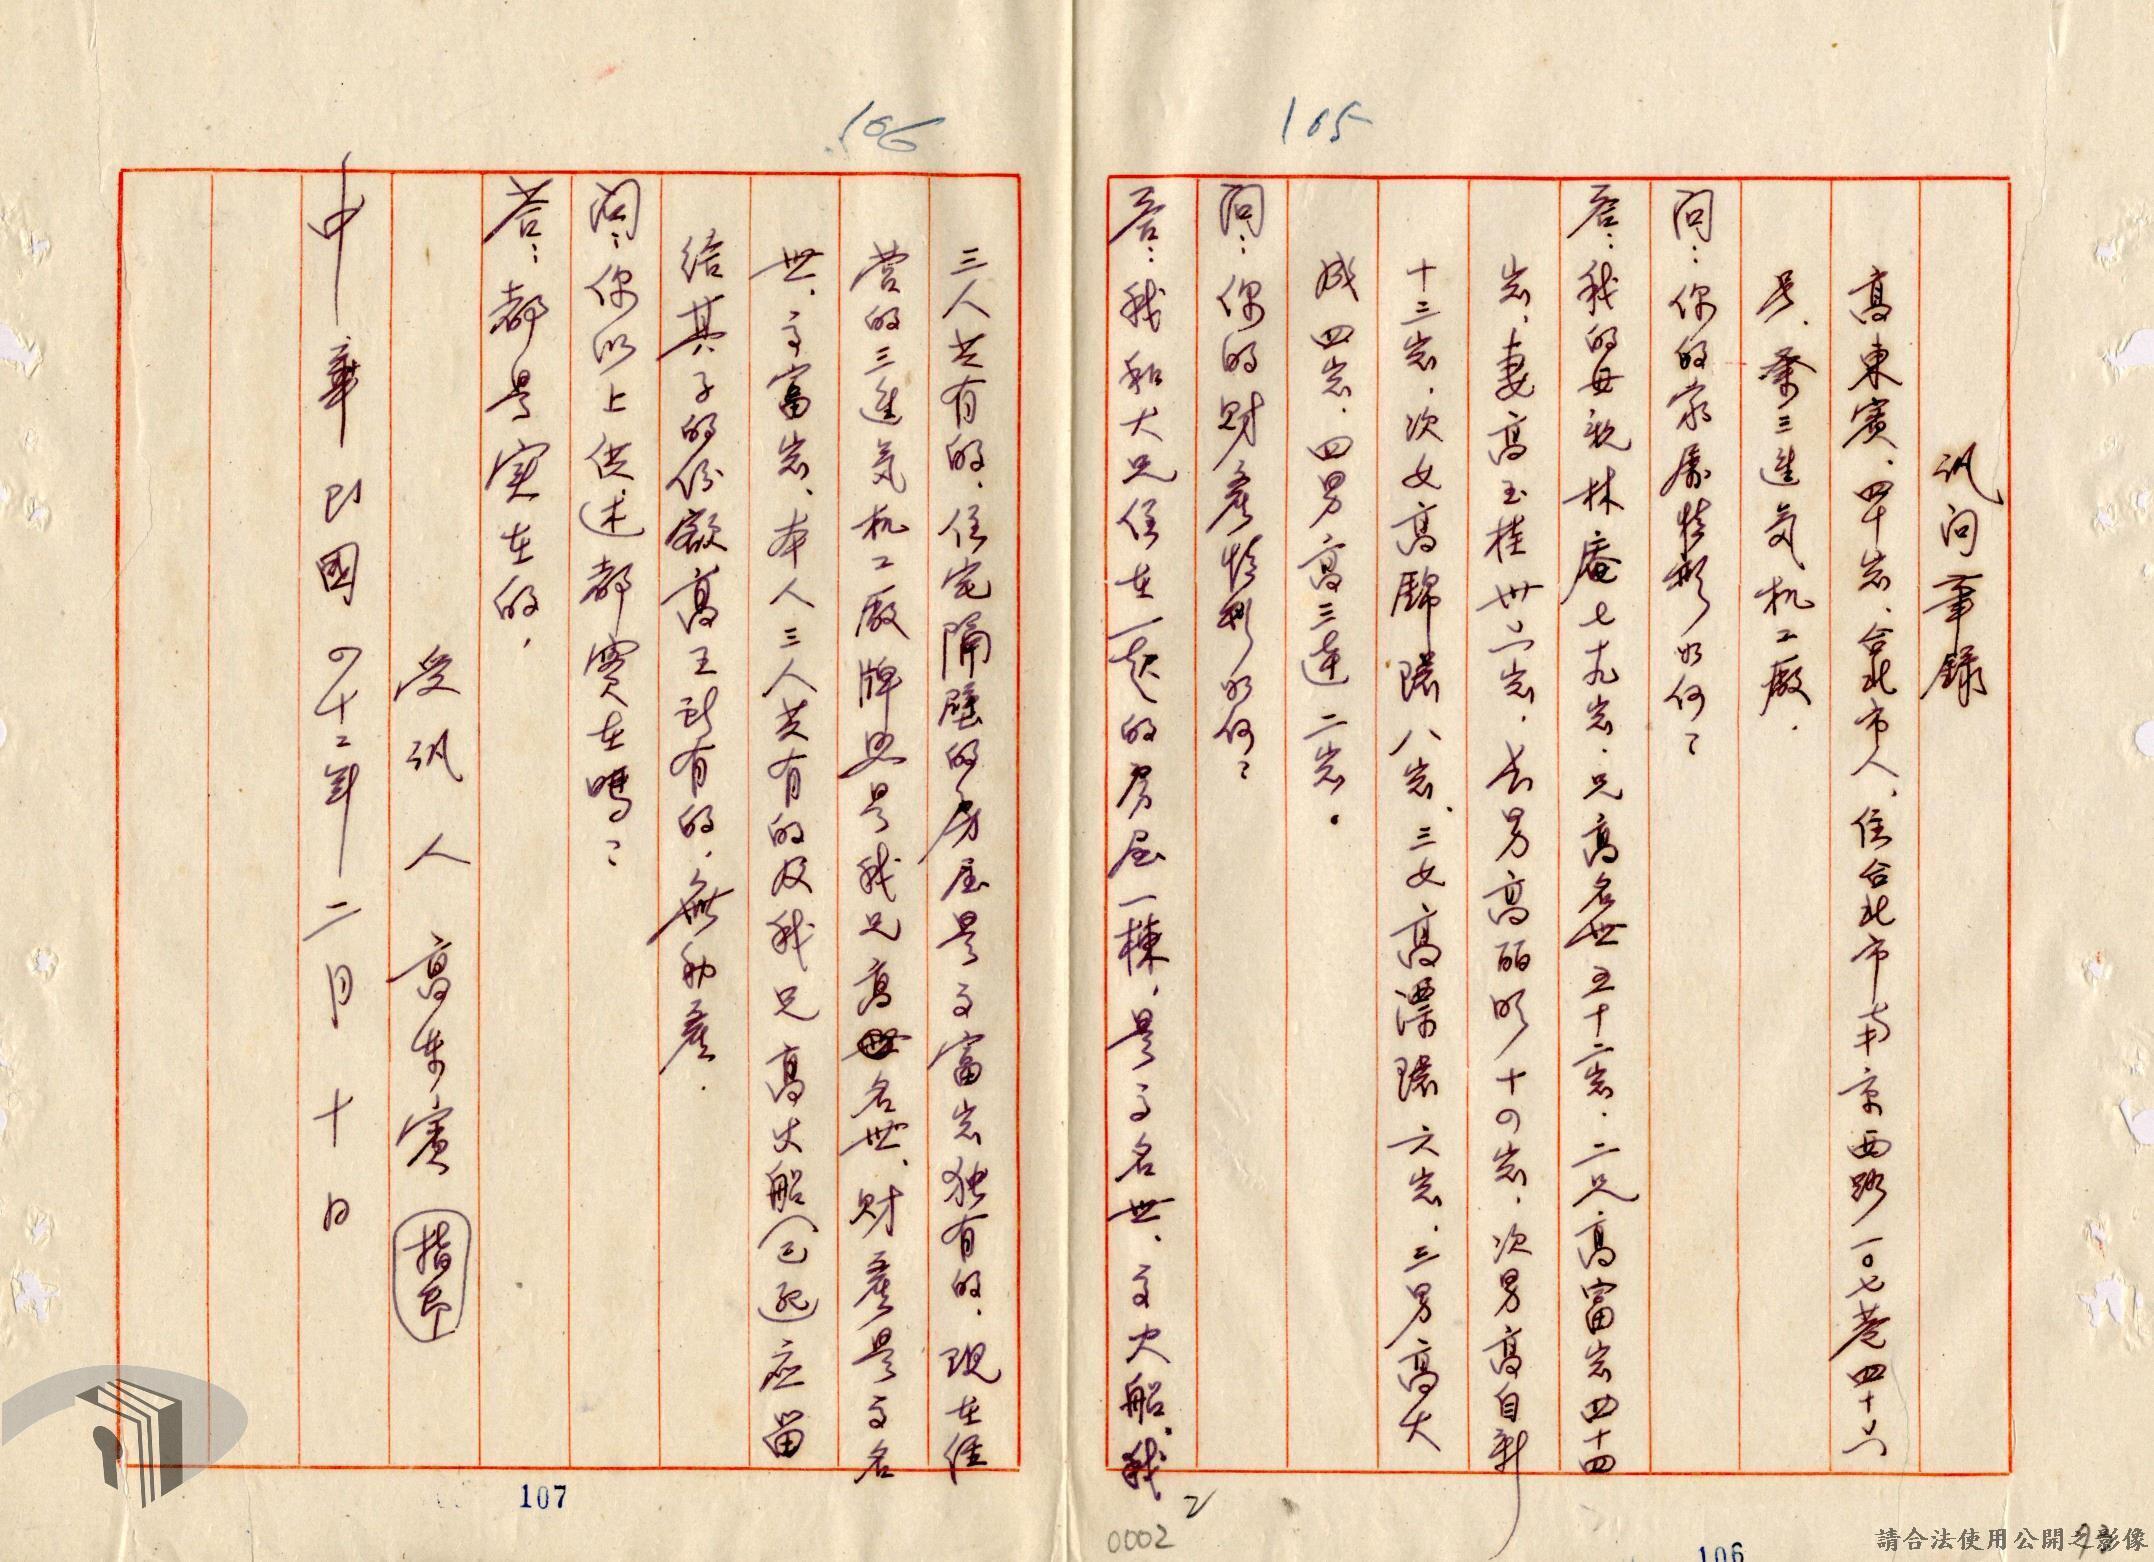 105
訊问筆錄
高東賓．四十岁．台北市人．住台北市南京西路一〇七巷四十六
号．業三進気机工廠．
问：你的家属情形如何？
答：我的母親林庵七十九岁．兄高名世五十二岁．二兄高富岩四十四
岁．妻高玉桂卅六岁．長男高丽明十四岁．次男高自新
十三岁．次女高錦環八岁．三女高漂環六岁．三男高大
成四岁．四男高三連二岁．
问：你的財產情形如何？
答：我和大兄住在一起的房屋一棟，是高名世．高火船．我
106
三人共有的．住宅隔壁的房屋是高富岩独有的．現在経
营的三進気机工廠牌照是我兄高名世．財產是高名
世．高富岩．本人三人共有的及我兄高火船（已死）应留
给其子的份額高玉改有的．無動產．
问：你以上供述都實在嗎？
答：都是实在的．
受訊人 高東賓 指印
中華民國四十二年二月十日
107
0002
106
請合法使用公開之影像